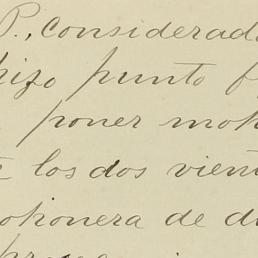 P., considerad
hizo punto f
poner moh
los dos vient
ohonera de d